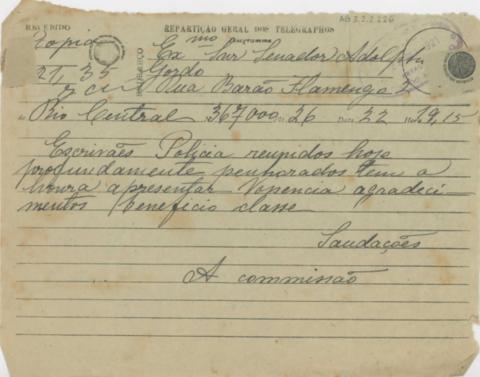 AG 3.2.2.226
RECEBIDO REPARTIÇÃO GERAL DOS TELEGRAPHOS
Exmo Snr Senador Adolpho
21,35 Gordo
Rua Barão Flamengo 2
de Rio Central 367000 26 Data 22 Hora 19,15
Escrivães Policia reunidos hoje
profundamente penhorados tem a
honra apresentar Vopencia agradeci-
mentos beneficio classe
Saudações
A commissão